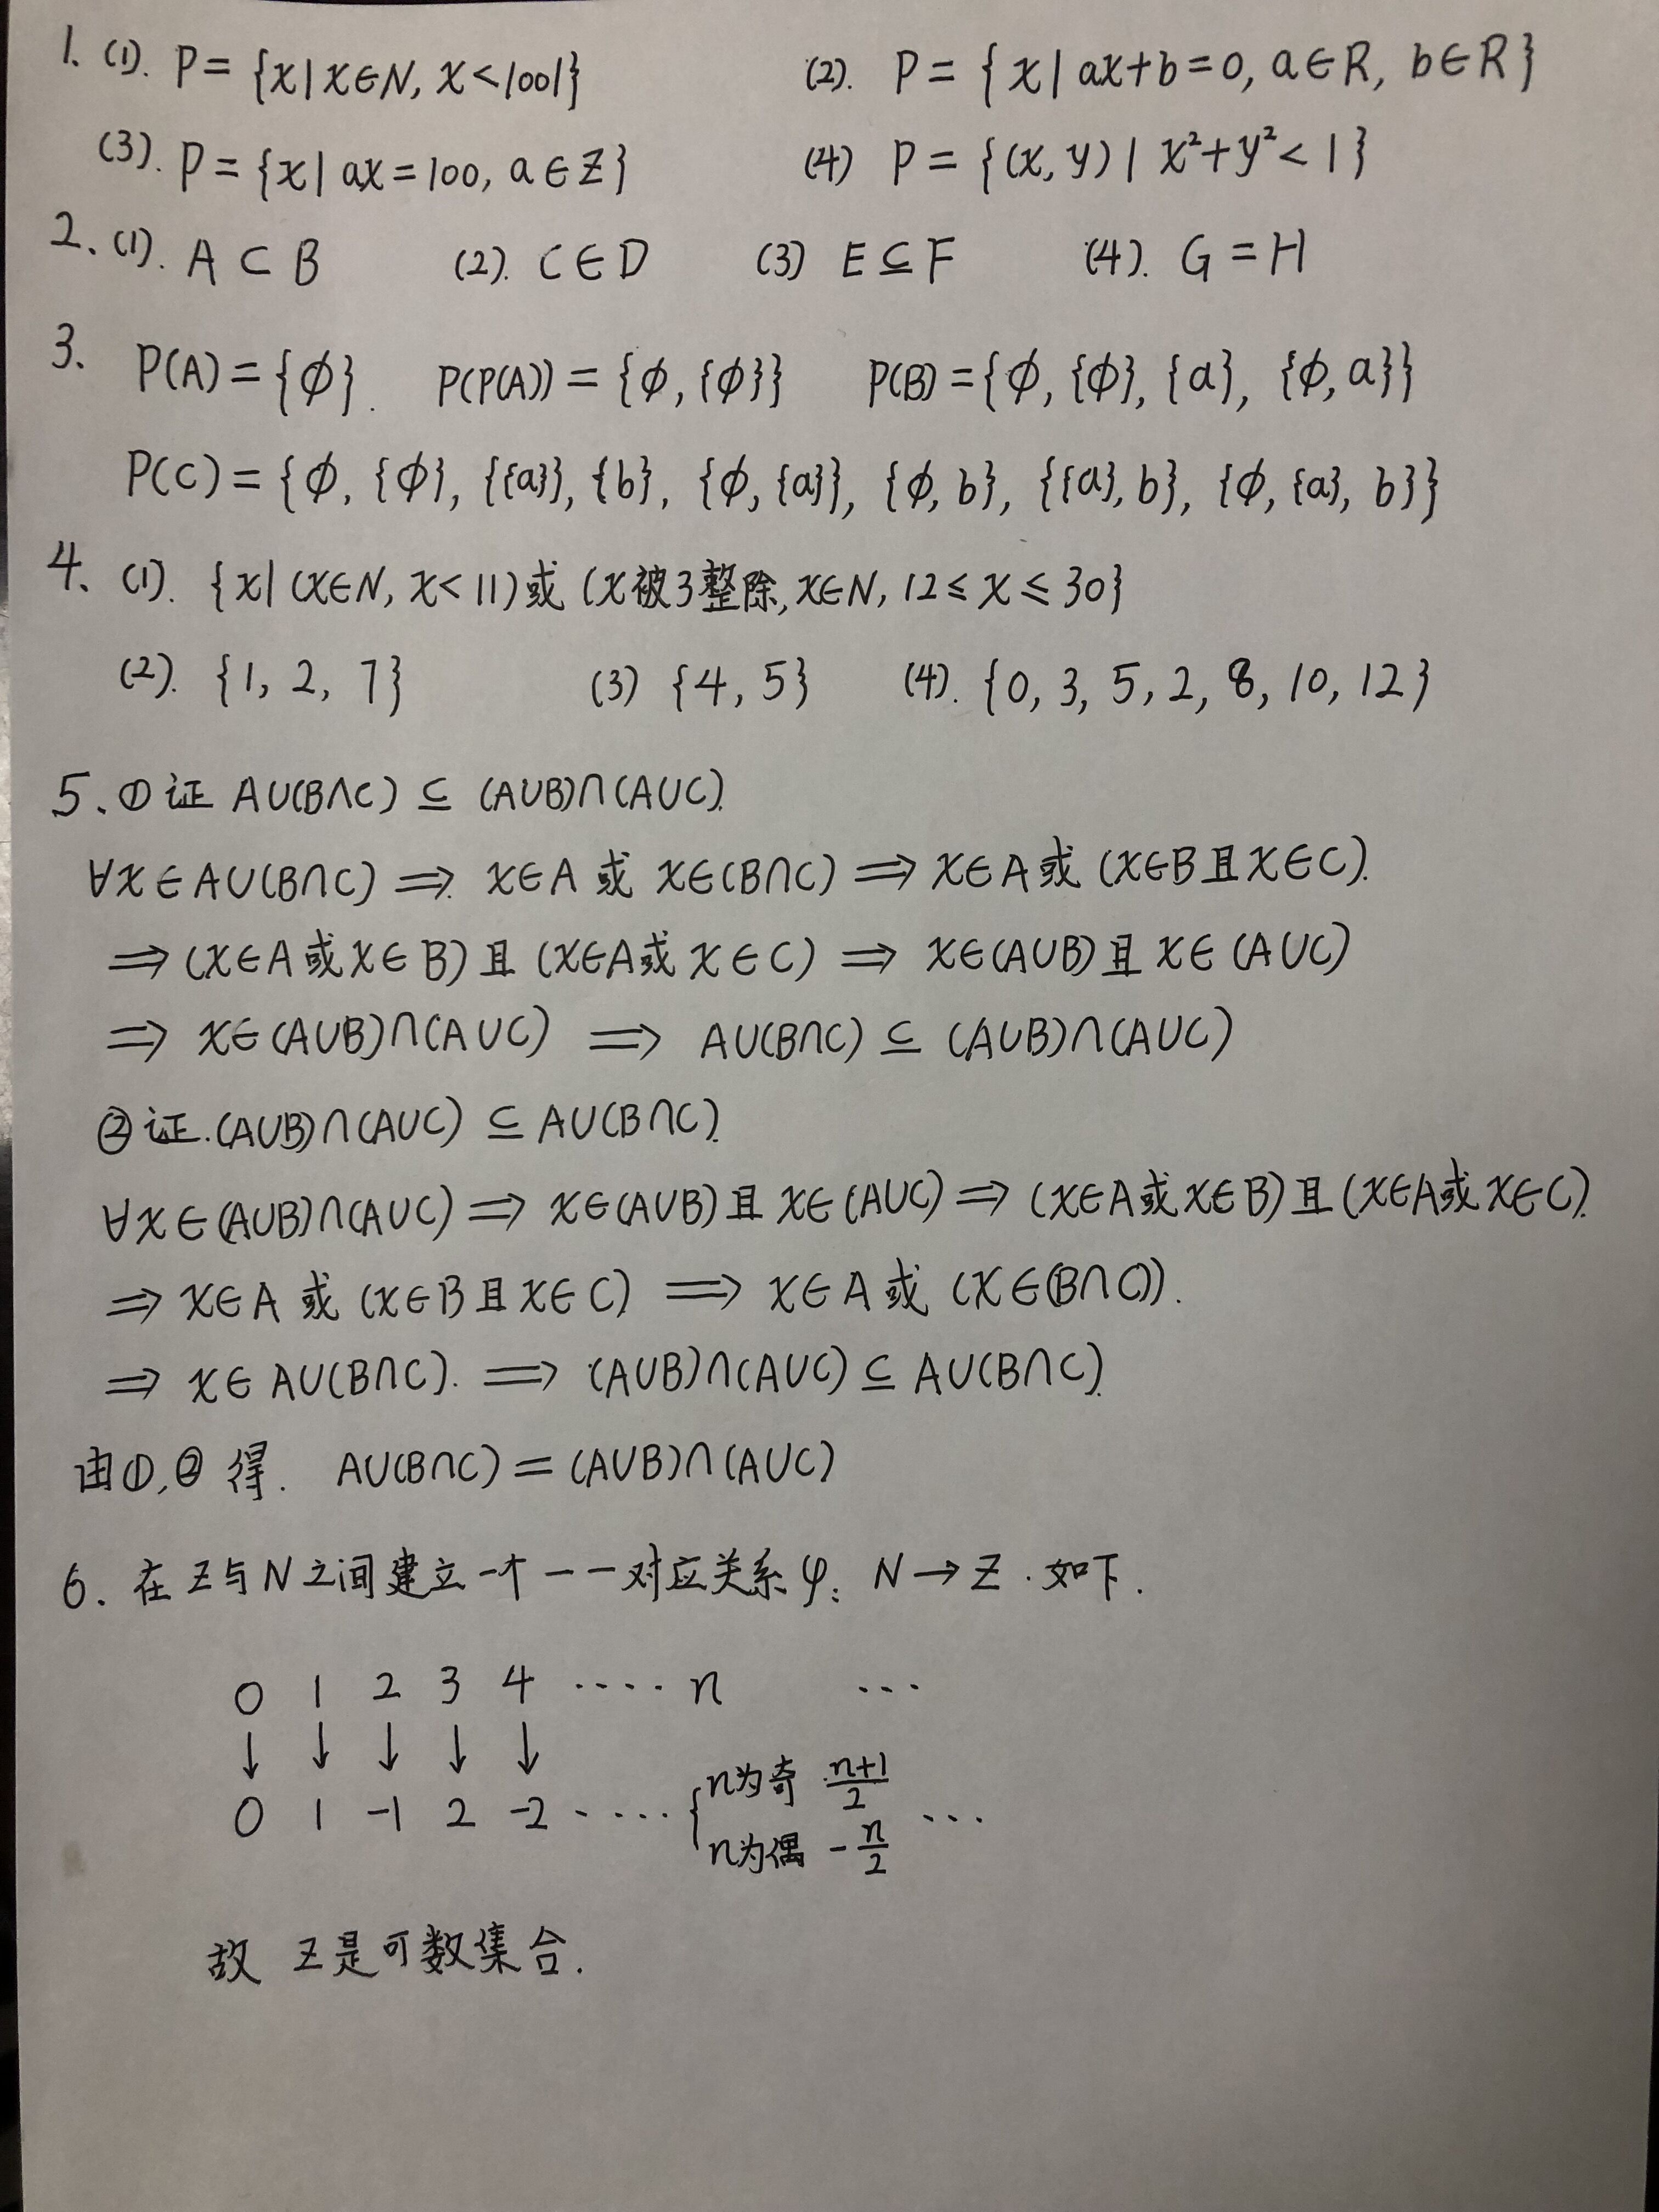 1. (1). P = {x | x∈N, x<1001}   (2). P = { x | ax+b=0, a∈R, b∈R }
(3). P = {x | ax=100, a∈Z}   (4) P = {(x, y) | x²+y²<1}
2. (1). A ⊂ B   (2). C∈D   (3) E⊆F   (4). G = H
3. P(A) = {ϕ}.   P(P(A)) = {ϕ, {ϕ}}   P(B) = {ϕ, {ϕ}, {a}, {ϕ, a}}
P(C) = {ϕ, {ϕ}, {{a}}, {b}, {ϕ, {a}}, {ϕ, b}, {{a}, b}, {ϕ, {a}, b}}
4. (1). {x | (x∈N, x<11)或 (x被3整除, x∈N, 12≤x≤30}
(2). {1, 2, 7}   (3) {4, 5}   (4). {0, 3, 5, 2, 8, 10, 12}
5. ① 证 A∪(B∩C) ⊆ (A∪B)∩(A∪C).
∀x∈A∪(B∩C) ⟹ x∈A 或 x∈(B∩C) ⟹ x∈A或 (x∈B且x∈C).
⟹ (x∈A或x∈B) 且 (x∈A或 x∈C) ⟹ x∈(A∪B)且 x∈(A∪C)
⟹ x∈(A∪B)∩(A∪C) ⟹ A∪(B∩C) ⊆ (A∪B)∩(A∪C)
② 证.(A∪B)∩(A∪C) ⊆ A∪(B∩C).
∀x∈(A∪B)∩(A∪C) ⟹ x∈(A∪B)且 x∈(A∪C) ⟹ (x∈A或x∈B)且(x∈A或x∈C).
⟹ x∈A 或 (x∈B且x∈C) ⟹ x∈A或 (x∈(B∩C)).
⟹ x∈A∪(B∩C). ⟹ (A∪B)∩(A∪C) ⊆ A∪(B∩C).
由①,② 得. A∪(B∩C) = (A∪B)∩(A∪C)
6. 在Z与N之间建立一个一一对应关系φ: N→Z. 如下.
0 1 2 3 4 ···· n ···
↓ ↓ ↓ ↓ ↓
0 1 -1 2 -2 ····· { n为奇 (n+1)/2 ···
n为偶 -n/2
故 Z是可数集合.